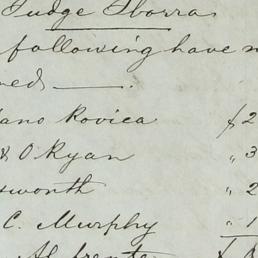 Judge Iborra
following have
ved ———.
ano Rovica $2
& O'Ryan " 3
sworth " 2
C. Murphy " 1
Al frente